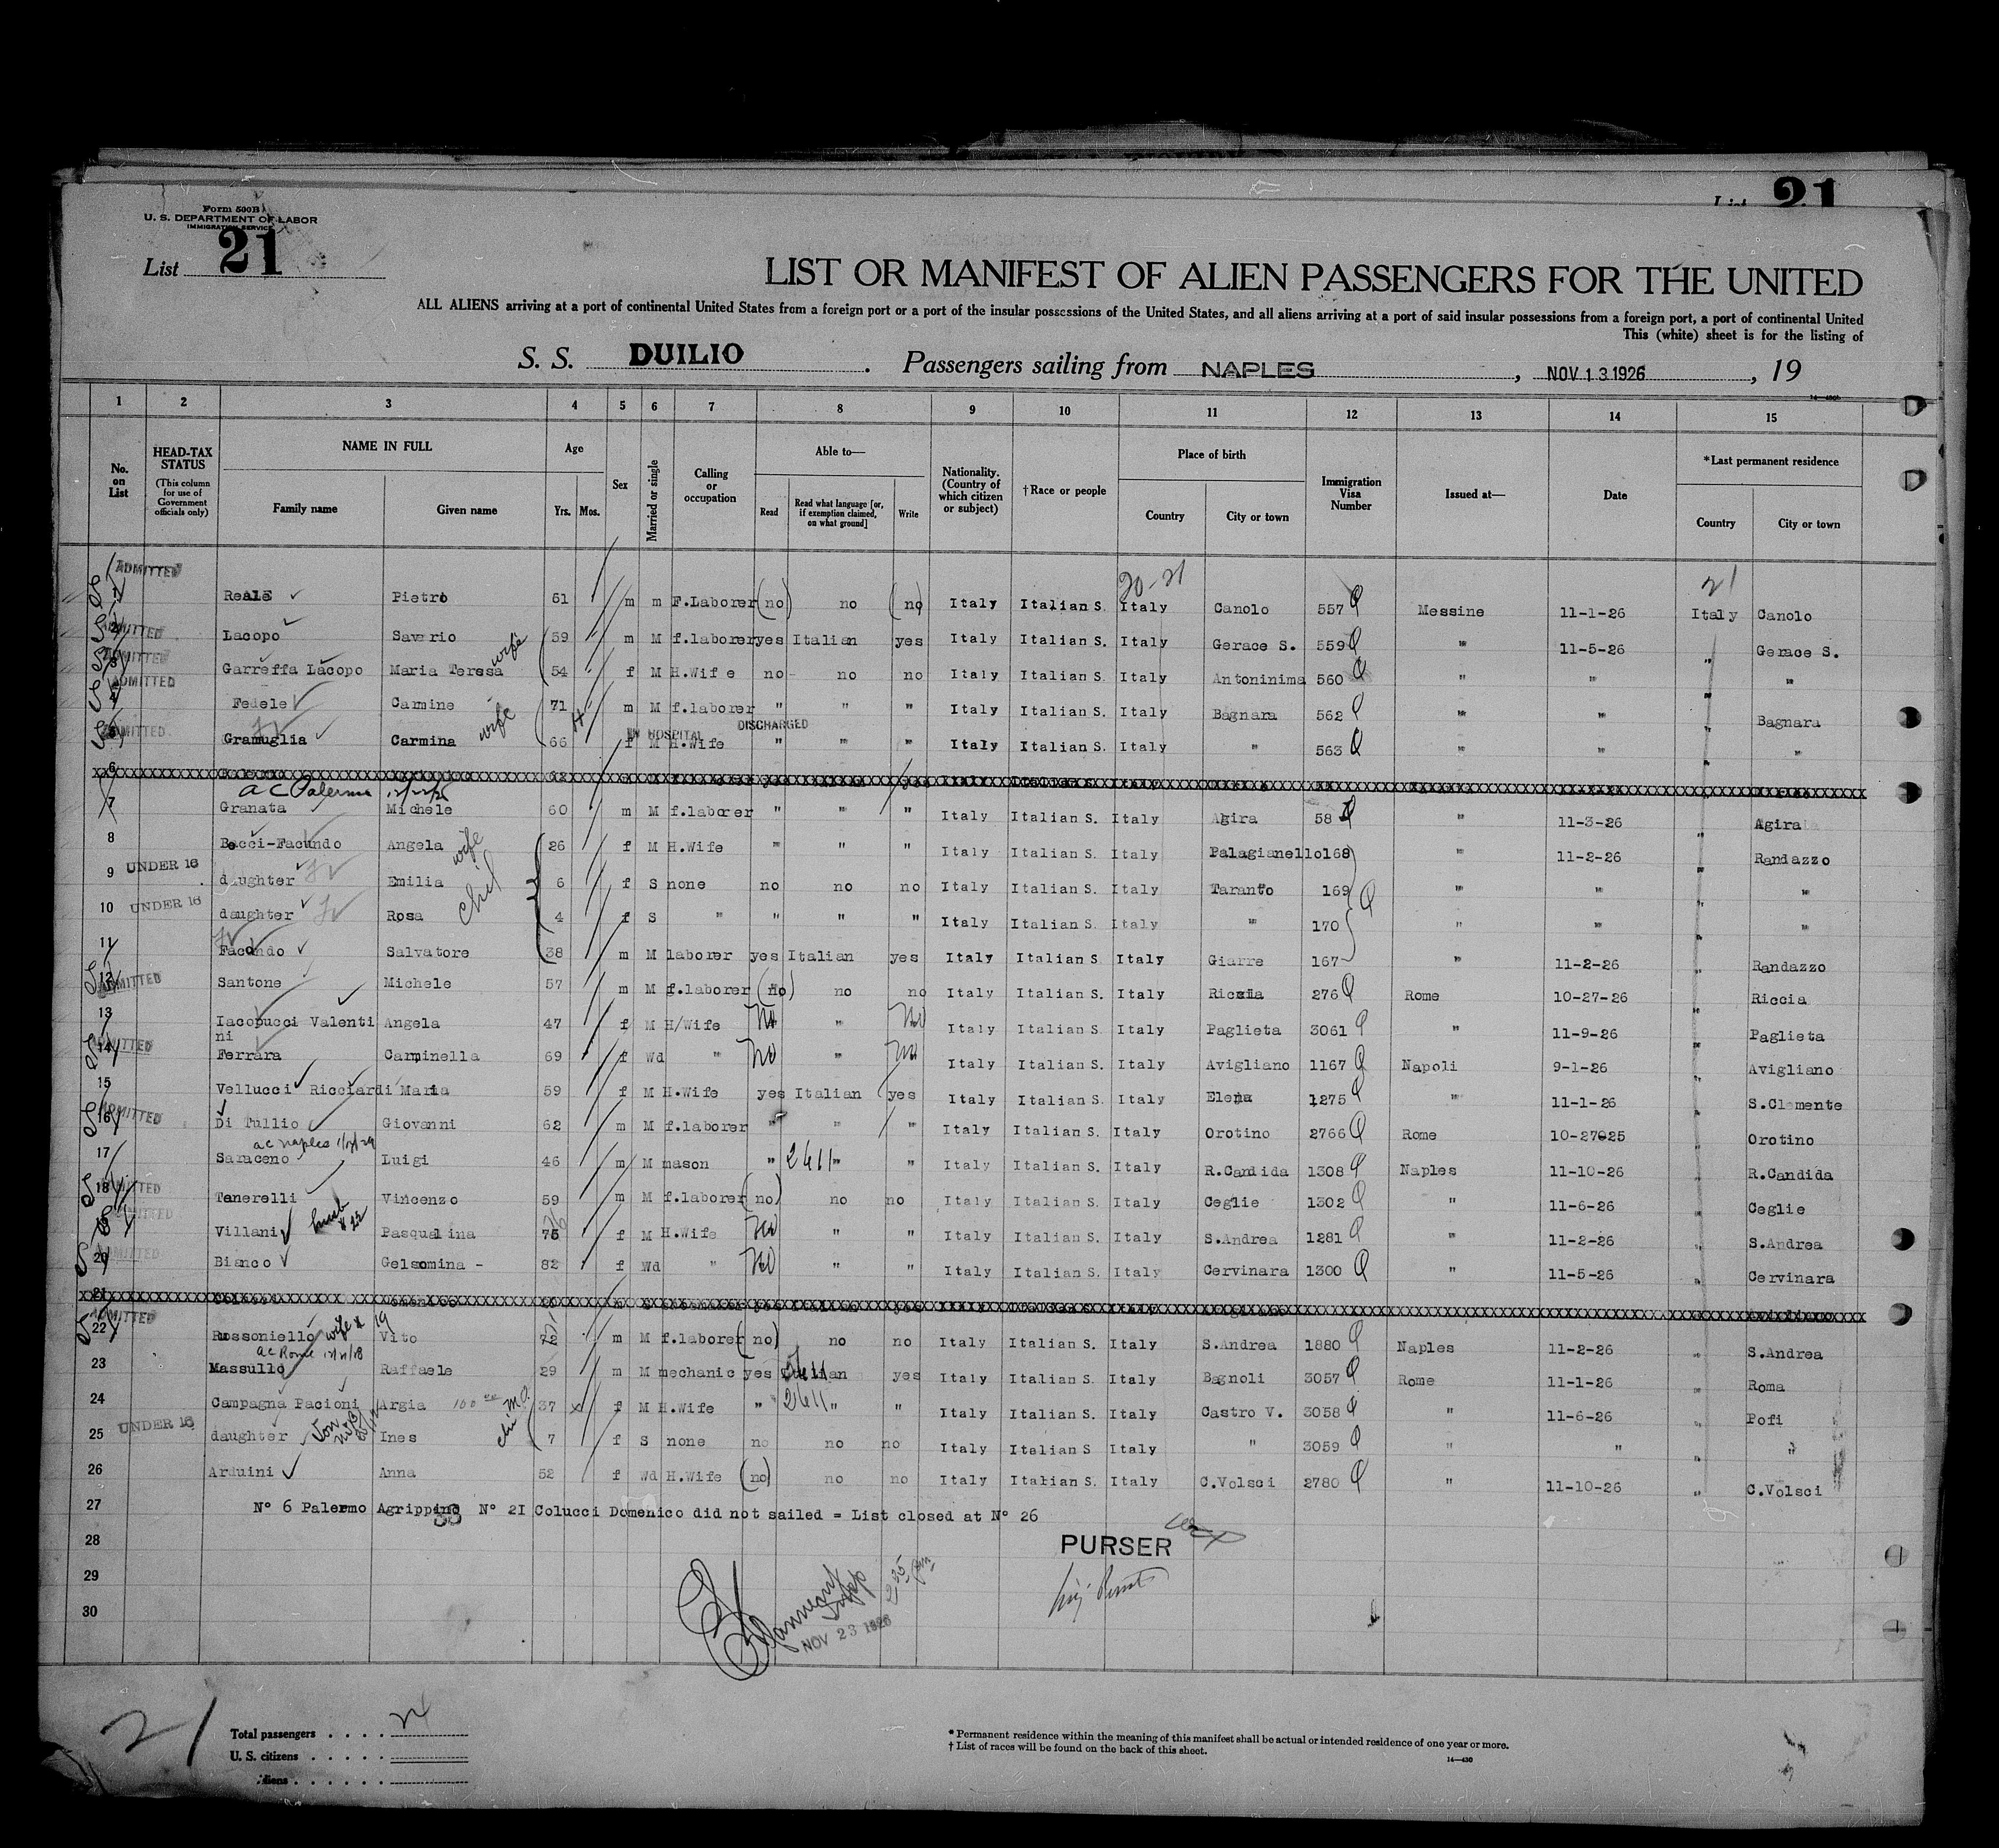 List 21
Form 500B
U. S. DEPARTMENT OF LABOR
IMMIGRATION SERVICE
List 21
LIST OR MANIFEST OF ALIEN PASSENGERS FOR THE UNITED
ALL ALIENS arriving at a port of continental United States from a foreign port or a port of the insular possessions of the United States, and all aliens arriving at a port of said insular possessions from a foreign port, a port of continental United
This (white) sheet is for the listing of
S. S. DUILIO . Passengers sailing from NAPLES , NOV 13 1926 , 19
1 2 3 4 5 6 7 8 9 10 11 12 13 14 15
No. on List
HEAD-TAX STATUS
(This column for use of Government officials only)
NAME IN FULL
Family name Given name
Age
Yrs. Mos.
Sex
Married or single
Calling or occupation
Able to—
Read
Read what language [or, if exemption claimed, on what ground]
Write
Nationality. (Country of which citizen or subject)
†Race or people
Place of birth
Country City or town
Immigration Visa Number
Issued at—
Date
*Last permanent residence
Country City or town
20-21 21
ADMITTED
1 Reale Pietro 51 m m F.Laborer (no) no (no) Italy Italian S. Italy Canolo 557 Messine 11-1-26 Italy Canolo
ADMITTED
2 Lacopo Saverio 59 m M f.laborer yes Italian yes Italy Italian S. Italy Gerace S. 559 " 11-5-26 " Gerace S.
ADMITTED
3 Garreffa Lacopo Maria Teresa wife 54 f M H.Wife no - no no Italy Italian S. Italy Antoninima 560 " " " "
ADMITTED
4 Fedele Carmine 71 m M f.laborer " " " Italy Italian S. Italy Bagnara 562 " " " Bagnara
ADMITTED
IN HOSPITAL DISCHARGED
5 Gramuglia Carmina wife 66 f M H.Wife " " " Italy Italian S. Italy " 563 " " " "
6
ac Palermo
7 Granata Michele 60 m M f.laborer " " " Italy Italian S. Italy Agira 58 " 11-3-26 " Agira
8 Bocci-Facundo Angela wife 26 f M H.Wife " " " Italy Italian S. Italy Palagianello 168 " 11-2-26 " Randazzo
UNDER 16
9 daughter Emilia 6 f S none no no no Italy Italian S. Italy Taranto 169 " " " "
UNDER 16
10 daughter Rosa 4 f S " " " " Italy Italian S. Italy " 170 " " " "
11 Facundo Salvatore 38 m M laborer yes Italian yes Italy Italian S. Italy Giarre 167 " 11-2-26 " Randazzo
ADMITTED
12 Santone Michele 57 m M f.laborer (no) no no Italy Italian S. Italy Riccia 276 Rome 10-27-26 " Riccia
13 Iacopucci Valentini Angela 47 f M H/Wife No " No Italy Italian S. Italy Paglieta 3061 " 11-9-26 " Paglieta
ADMITTED
14 Ferrara Carminella 69 f Wd " No " No Italy Italian S. Italy Avigliano 1167 Napoli 9-1-26 " Avigliano
15 Vellucci Ricciardi Maria 59 f M H.Wife yes Italian yes Italy Italian S. Italy Elena 1275 " 11-1-26 " S.Clemente
ADMITTED
16 Di Tullio Giovanni 62 m M f.laborer " " " Italy Italian S. Italy Orotino 2766 Rome 10-27025 " Orotino
ac Naples
17 Saraceno Luigi 46 m M mason " 2611 " " Italy Italian S. Italy R.Candida 1308 Naples 11-10-26 " R.Candida
ADMITTED
18 Tanerelli Vincenzo 59 m M f.laborer (no) no no Italy Italian S. Italy Ceglie 1302 " 11-6-26 " Ceglie
ADMITTED
19 Villani Pasqualina 75 f M H.Wife No " " Italy Italian S. Italy S.Andrea 1281 " 11-2-26 " S.Andrea
ADMITTED
20 Bianco Gelsomina - 82 f Wd " No " " Italy Italian S. Italy Cervinara 1300 " 11-5-26 " Cervinara
21
ADMITTED
22 Russoniello wife Vito 72 m M f.laborer (no) no no Italy Italian S. Italy S.Andrea 1880 Naples 11-2-26 " S.Andrea
ac Rome
23 Massullo Raffaele 29 m M mechanic yes Italian yes Italy Italian S. Italy Bagnoli 3057 Rome 11-1-26 " Roma
24 Campagna Pacioni Argia 37 f M H.Wife " 2611 " " Italy Italian S. Italy Castro V. 3058 " 11-6-26 " Pofi
UNDER 16
25 daughter Ines 7 f S none no no no Italy Italian S Italy " 3059 " " " "
26 Arduini Anna 52 f Wd H.Wife (no) no no Italy Italian S Italy C.Volsci 2780 " 11-10-26 " C.Volsci
27 N° 6 Palermo Agrippino N° 2I Colucci Domenico did not sailed = List closed at N° 26
28 PURSER
29
30
NOV 23 1926
21
Total passengers . . . .
U. S. citizens . . . . .
Aliens . . . . . .
* Permanent residence within the meaning of this manifest shall be actual or intended residence of one year or more.
† List of races will be found on the back of this sheet.
14—430